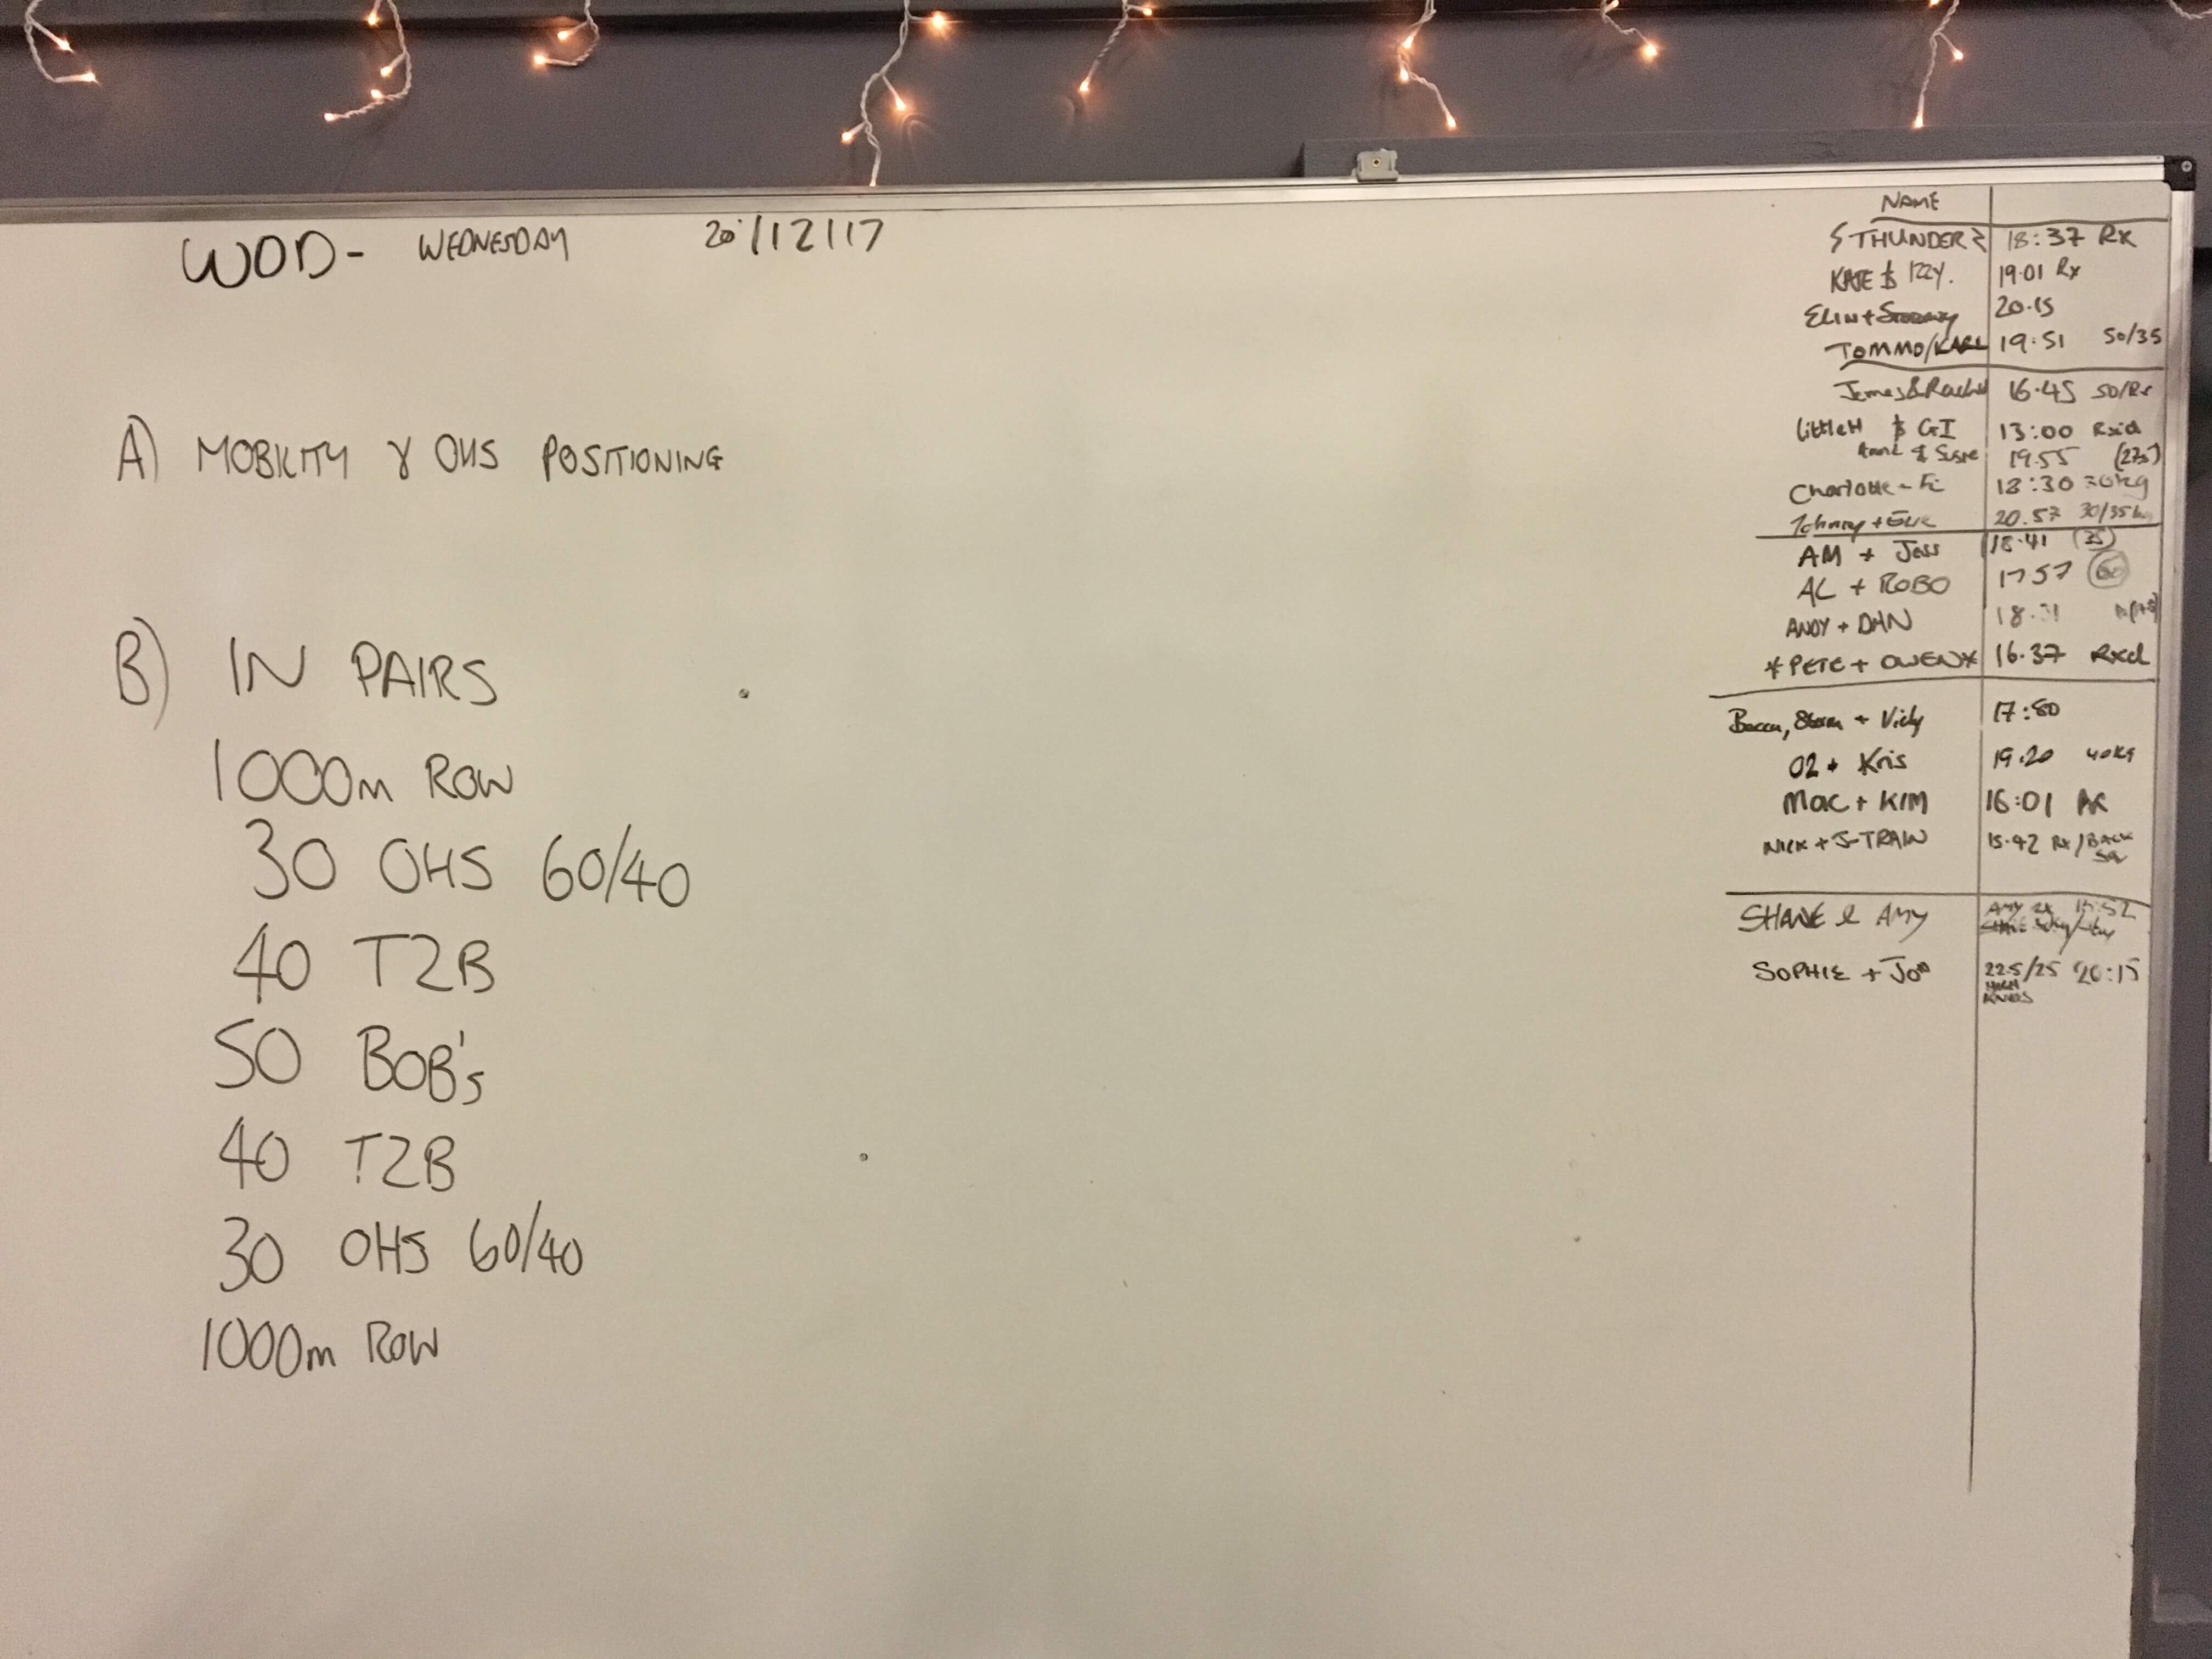 WOD- WEDNESDAY 20/12/17
A) MOBILITY & OHS POSITIONING
B) IN PAIRS
1000m ROW
30 OHS 60/40
40 T2B
50 BOB's
40 T2B
30 OHS 60/40
1000m ROW
NAME
THUNDER 18:37 Rx
KATE & IZZY. 19.01 Rx
ELIN + 20.15
TOMMO/KARL 19:51 50/35
James & Rachel 16.45 50/Rx
Little H & GI 13:00 Rxid
& Susie 19.55 (27.5)
Charlotte - Fi 18:30 30kg
Johnny + Evie 20.57 30/35kg
AM + Jess 18.41 (35)
AL + ROBO 17 57
ANDY + DAN
*PETE + OWEN* 16.37 Rxd
Becca, Storm + Vicky 17:50
02 + Kris 19.20 40KG
Mac + KIM 16:01
NICK + J-TRAIN 15.42 Rx/BACK
SQ
SHANE & AMY AMY
SOPHIE + JO 22.5/25 20:15
HIGH
KNEES